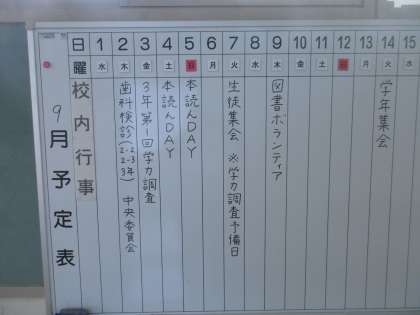 9月予定表
日 1 2 3 4 5 6 7 8 9 10 11 12 13 14 15
曜 水 木 金 土 日 月 火 水 木 金 土 日 月 火
校内行事
歯科検診(2-2、2-3、3年) 中央委員会
3年第1回学力調査
本読んDAY
本読んDAY
生徒集会 ※学力調査予備日
図書ボランティア
学年集会